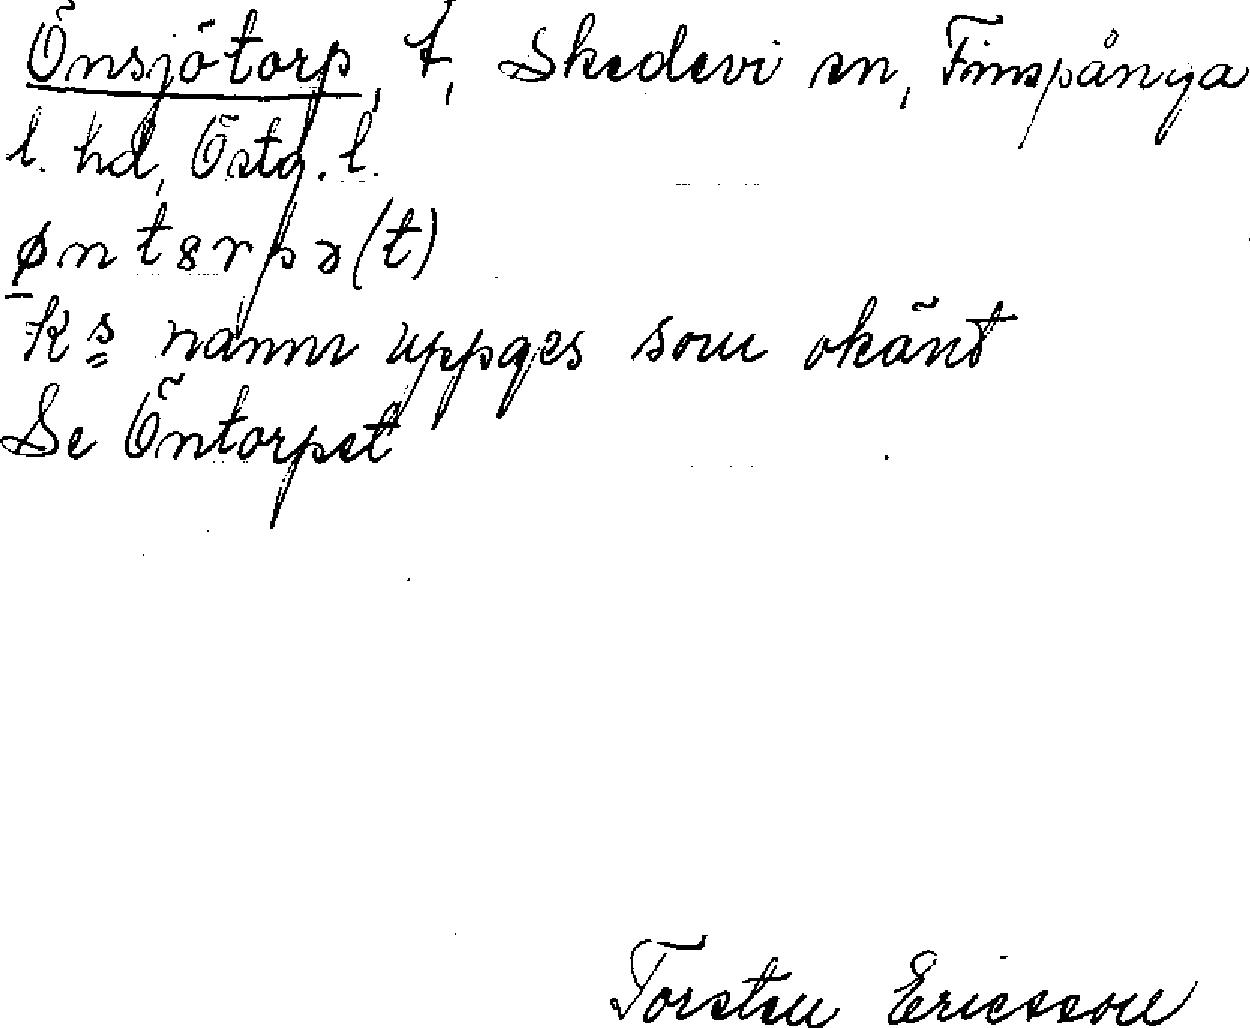 Önsjötorp, t, Skedevi sn, Finspånga
l. hd, Östg. l.
øntɜrpə(t)
Ks namn uppges som okänt
Se Öntorpet
Torsten Ericsson